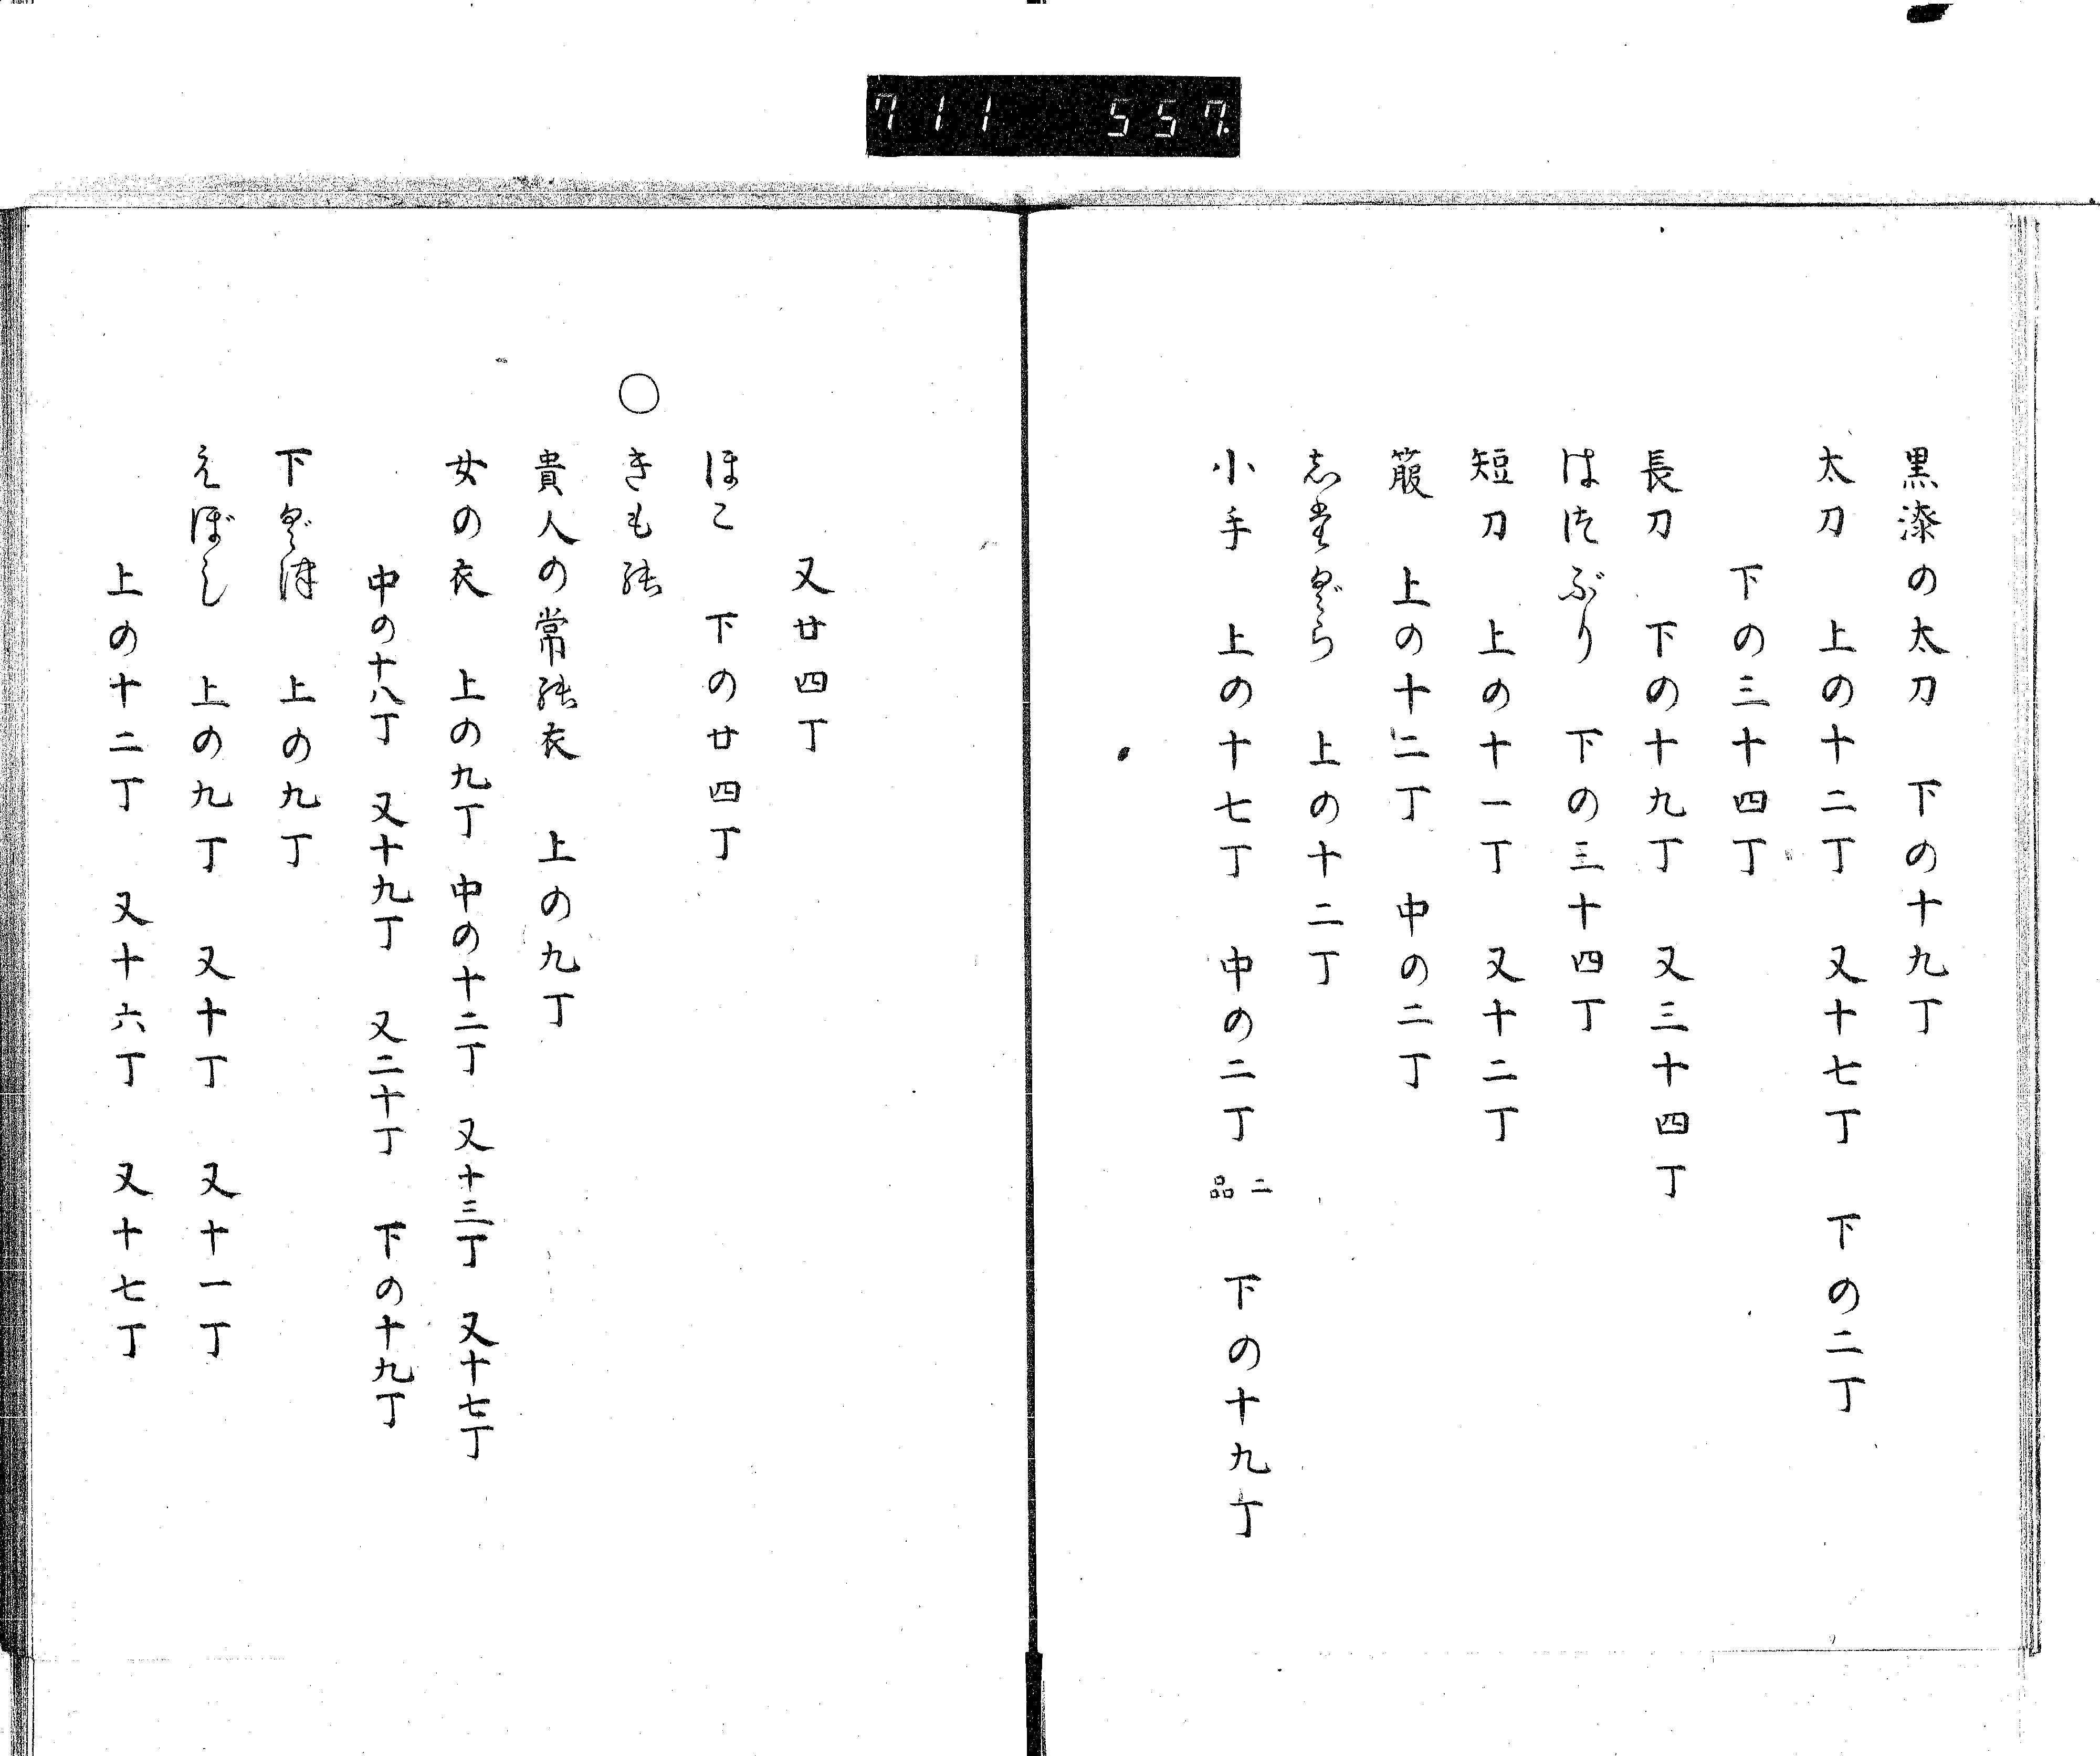 711 557
黒漆の太刀 下の十九丁
太刀 上の十二丁 又十七丁 下の二丁
下の三十四丁
長刀 下の十九丁 又三十四丁
はつぶり 下の三十四丁
短刀 上の十一丁 又十二丁
箙 上の十二丁 中の二丁
したぐら 上の十二丁
小手 上の十七丁 中の二丁 二品 下の十九丁
又廿四丁
ほこ 下の廿四丁
○きもの
貴人の常の衣 上の九丁
女の衣 上の九丁 中の十二丁 又十三丁 又十七丁
中の十八丁 又十九丁 又二十丁 下の十九丁
下ぐつ 上の九丁
えぼし 上の九丁 又十丁 又十一丁
上の十二丁 又十六丁 又十七丁